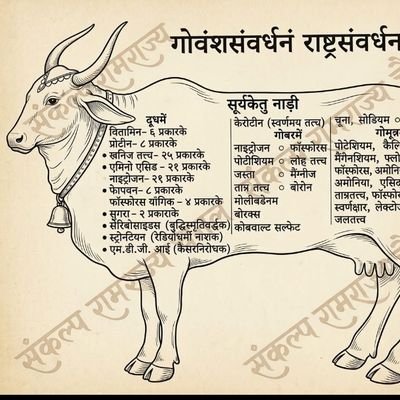 गोवंशसंवर्धनं राष्ट्रसंवर्धन
सूर्यकेतु नाड़ी
दूधमें
विटामिन- ६ प्रकारके
प्रोटीन- ८ प्रकारके
• खनिज तत्त्व- २५ प्रकारके
• एमिनो एसिड - २१ प्रकारके
नाइट्रोजन- १९ प्रकारके
• फेापवन- ८ प्रकारके
फॉस्फोरस यांगिक - ४ प्रकारके
• सुगरा - २ प्रकाराके
• सेरिबोसाइडस (बुद्धिस्मृतिवर्द्धक)
• स्ट्रोन्टियन (रेडियोधर्मी नाशक)
• एम.डी.जी. आई (कैंसरनिरोधक)
केरोटीन (स्वर्णमय तत्त्व)
गोबरमें
नाइट्रोजन ○ फॉस्फोरस
पोटीशियम ○ लोह तत्त्व
जस्ता ○ मैंग्नीज
ताम्र तत्त्व ○ बोरोन
मोलीबडेनम
बोरक्स
कोबवाल्ट सल्फेट
चूना, सोडियम ○
गोमूत्र
पोटेशियम, कैलि
मैंगेनशियम, फ्लो
फॉस्फोरस, अमोनि
अमोनिया, एसिड
ताम्रतत्त्व, फॉस्फो
स्वर्णक्षार, लेक्टो
जलतत्त्व
संकल्प रामराज्य
संकल्प रामराज्य
संकल्प रामराज्य